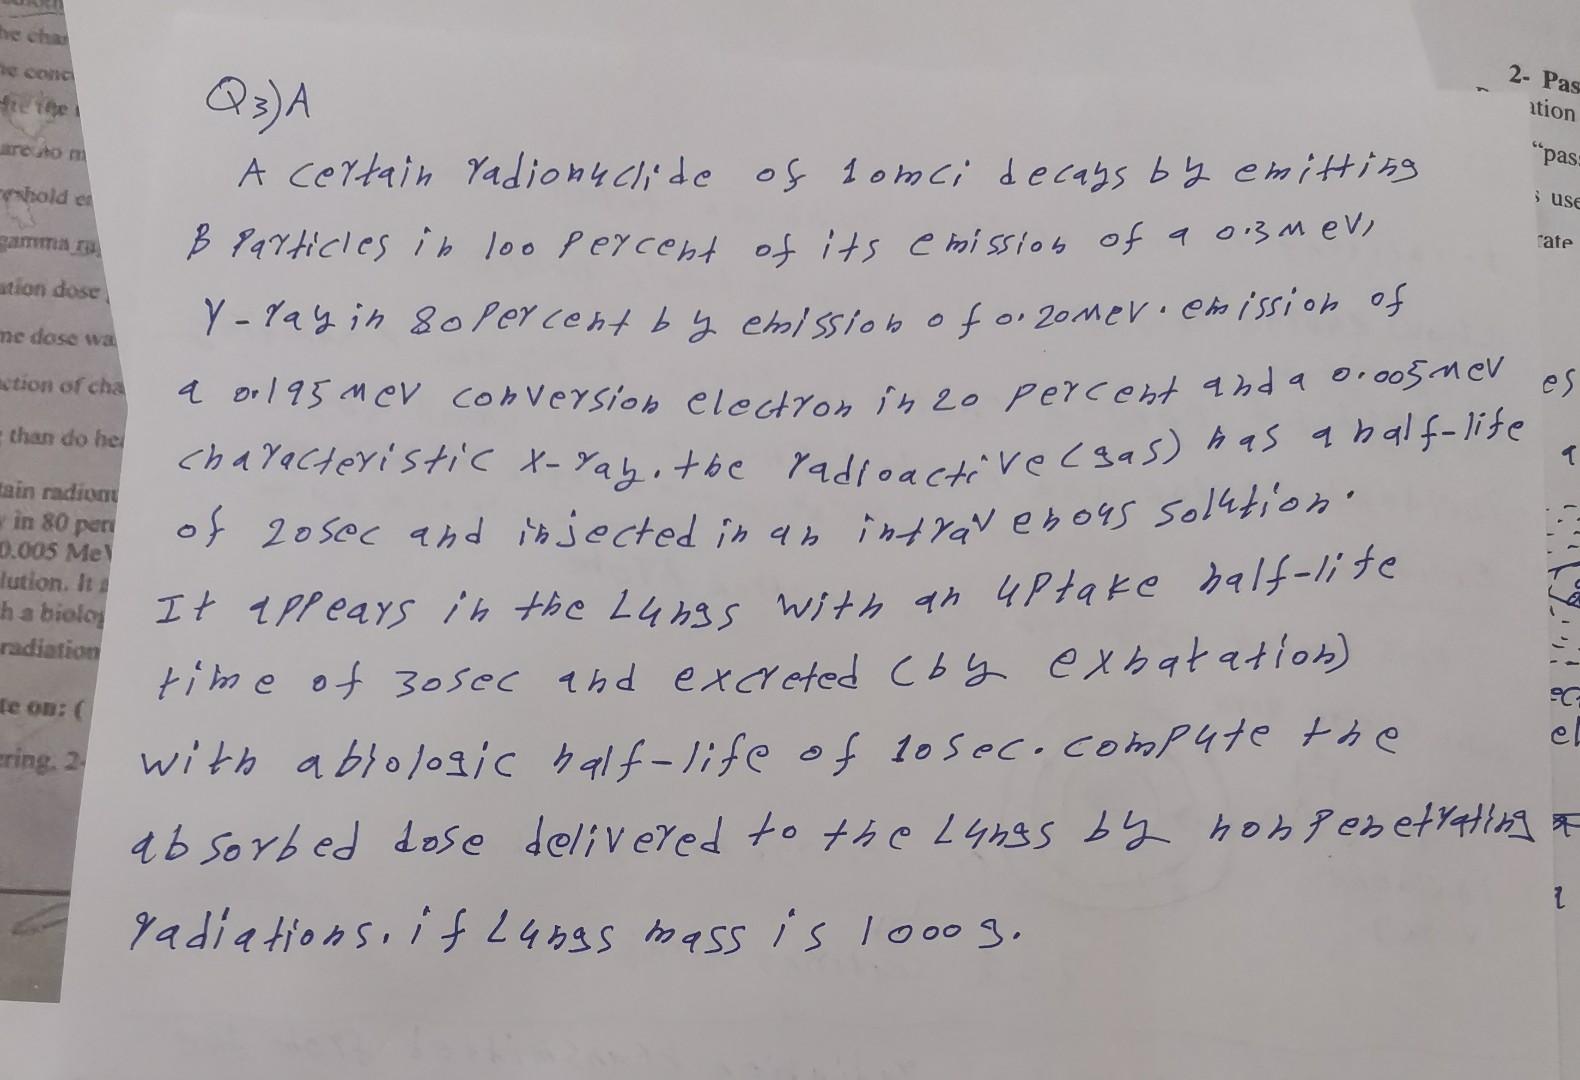 Q3)A
A certain radionuclide of 10mci decays by emitting
B Particles in 100 percent of its emission of a 0.3 MeV,
γ-ray in 80 Percent by emission of 0.20MeV. emission of
a 0.195 MeV conversion electron in 20 percent and a 0.005MeV
characteristic X-ray. the radioactive (gas) has a half-life
of 20sec and injected in an intravenous solution.
It appears in the Lungs with an uptake half-life
time of 30sec and excreted (by exhatation)
with a biologic half-life of 10sec. compute the
absorbed dose delivered to the Lungs by nonpenetrating
radiations. if Lungs mass is 1000g.
he char
he conc
are to m
eshold en
gamma ra
ation dose
me dose wa
ction of cha
than do he
tain radionu
in 80 perc
0.005 MeV
lution. It a
h a biolog
radiation
te on: (
ring. 2-
2- Pas
ation
"pas
use
rate
es